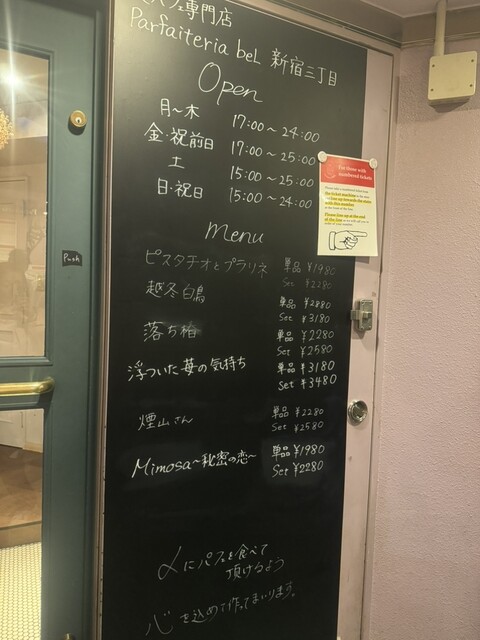 パフェ専門店
Parfaiteria beL 新宿三丁目
Open
月～木 17:00～24:00
金・祝前日 17:00～25:00
土 15:00～25:00
日・祝日 15:00～24:00
menu
ピスタチオとプラリネ 単品 ¥1980
Set ¥2280
越冬白鳥 単品 ¥2880
Set ¥3180
落ち椿 単品 ¥2280
Set ¥2580
浮ついた苺の気持ち 単品 ¥3180
Set ¥3480
煙山さん 単品 ¥2280
Set ¥2580
Mimosa～秘密の恋～ 単品 ¥1980
Set ¥2280
〆にパフェを食べて
頂けるよう
心を込めて作ってまいります。
Push
For those with
numbered tickets